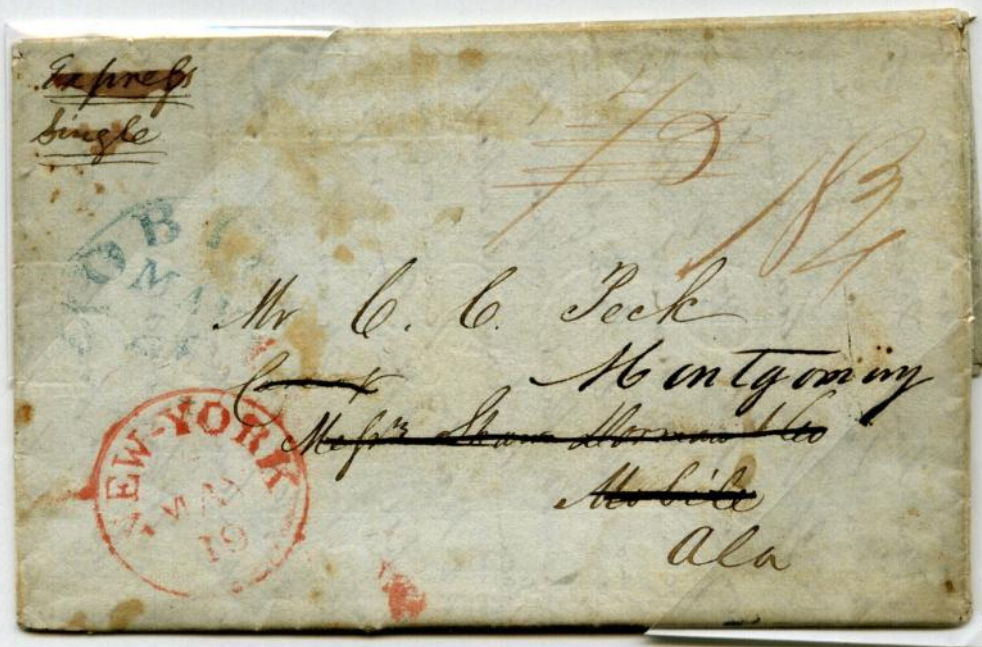 Express
Single
75
18 3/4
MOBI
MAY
Mr C. C. Peck
Montgomery
Messrs Shaw Dorman & Co
Mobile
Ala
NEW-YORK
MAY
19